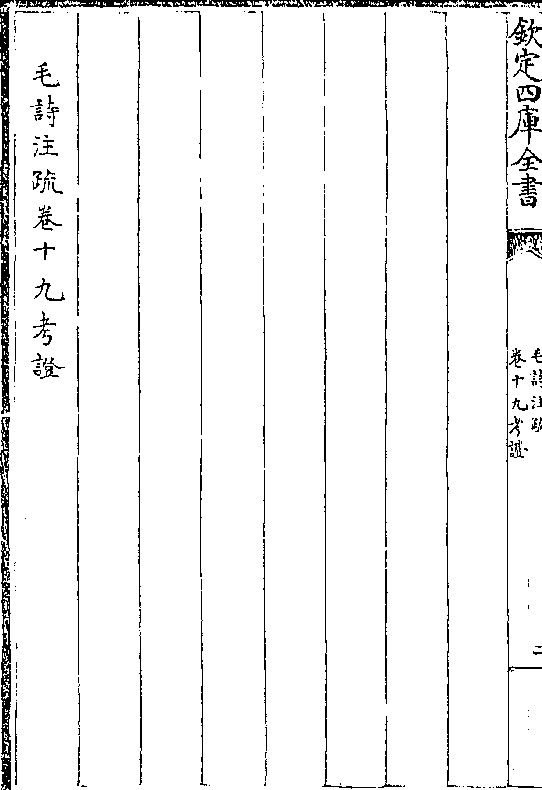 欽定四庫全書
毛詩注疏
卷十九考證
二
毛詩注疏卷十九考證